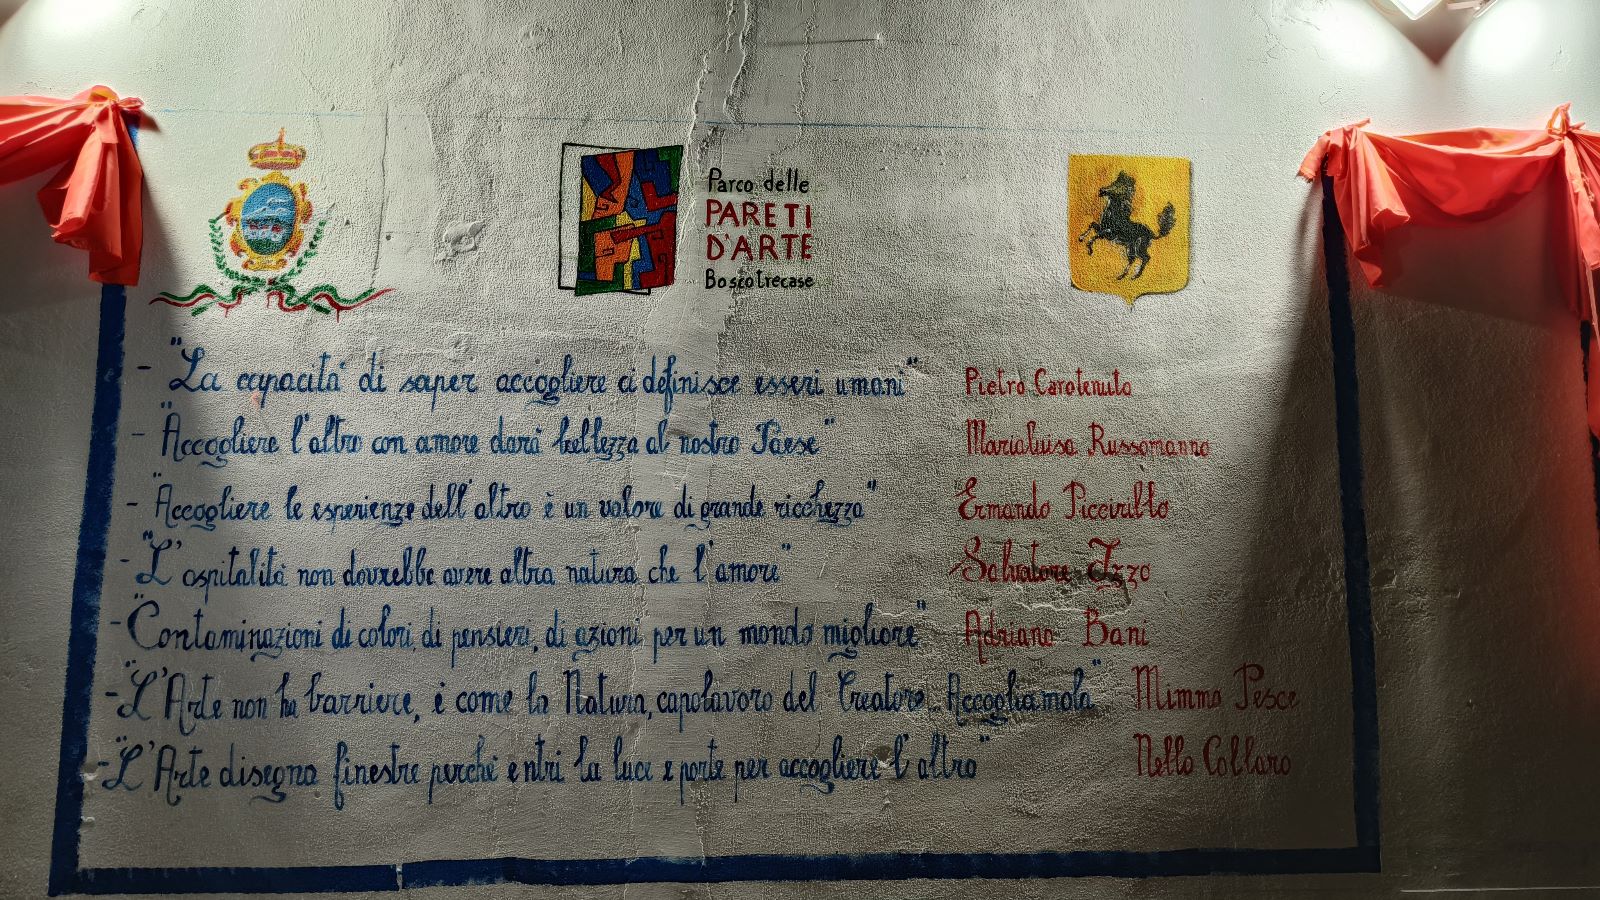 Parco delle
PARETI
D'ARTE
Boscotrecase
- "La capacità di saper accogliere ci definisce esseri umani" Pietro Carotenuto
- "Accogliere l'altro con amore darà bellezza al nostro Paese" Marialuisa Russomanno
- "Accogliere le esperienze dell'altro è un valore di grande ricchezza" Ermando Piccirillo
- "L'ospitalità non dovrebbe avere altra natura che l'amore" Salvatore Izzo
- "Contaminazioni di colori, di pensieri, di azioni per un mondo migliore" Adriano Bani
- "L'Arte non ha barriere, è come la Natura, capolavoro del Creatore. Accogliamola" Mimmo Pesce
- "L'Arte disegna finestre perché entri la luce e porte per accogliere l'altro" Nello Collaro